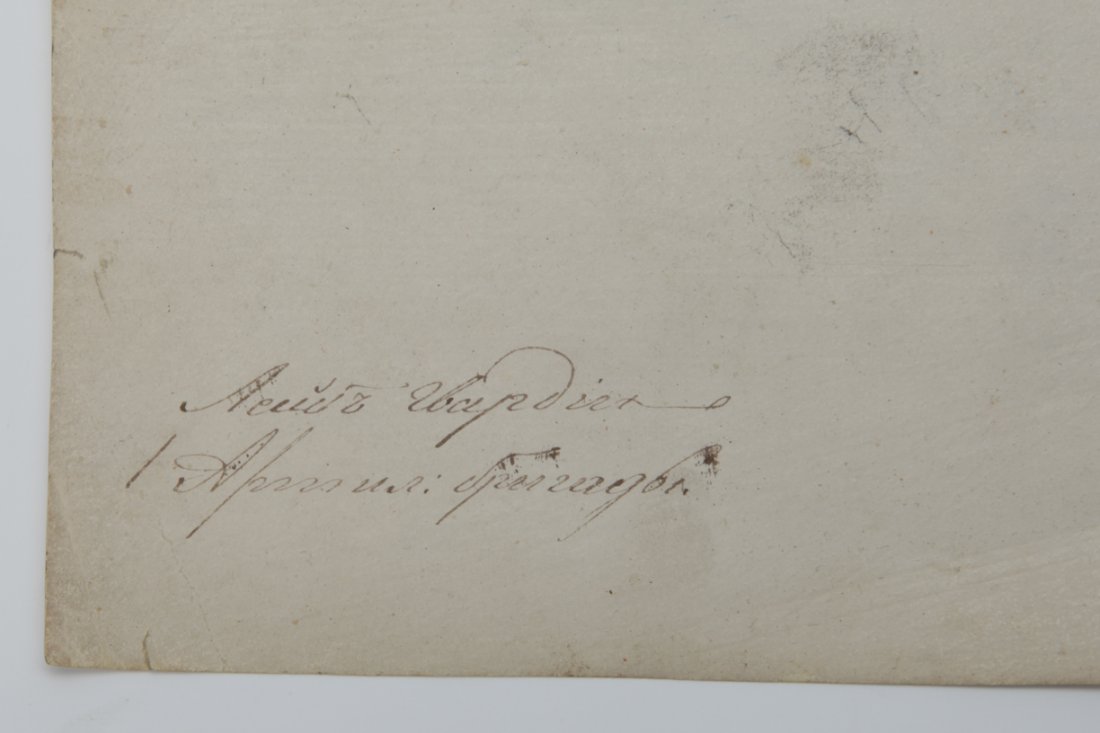 Лейбъ гвардіи
Артил: бригады.